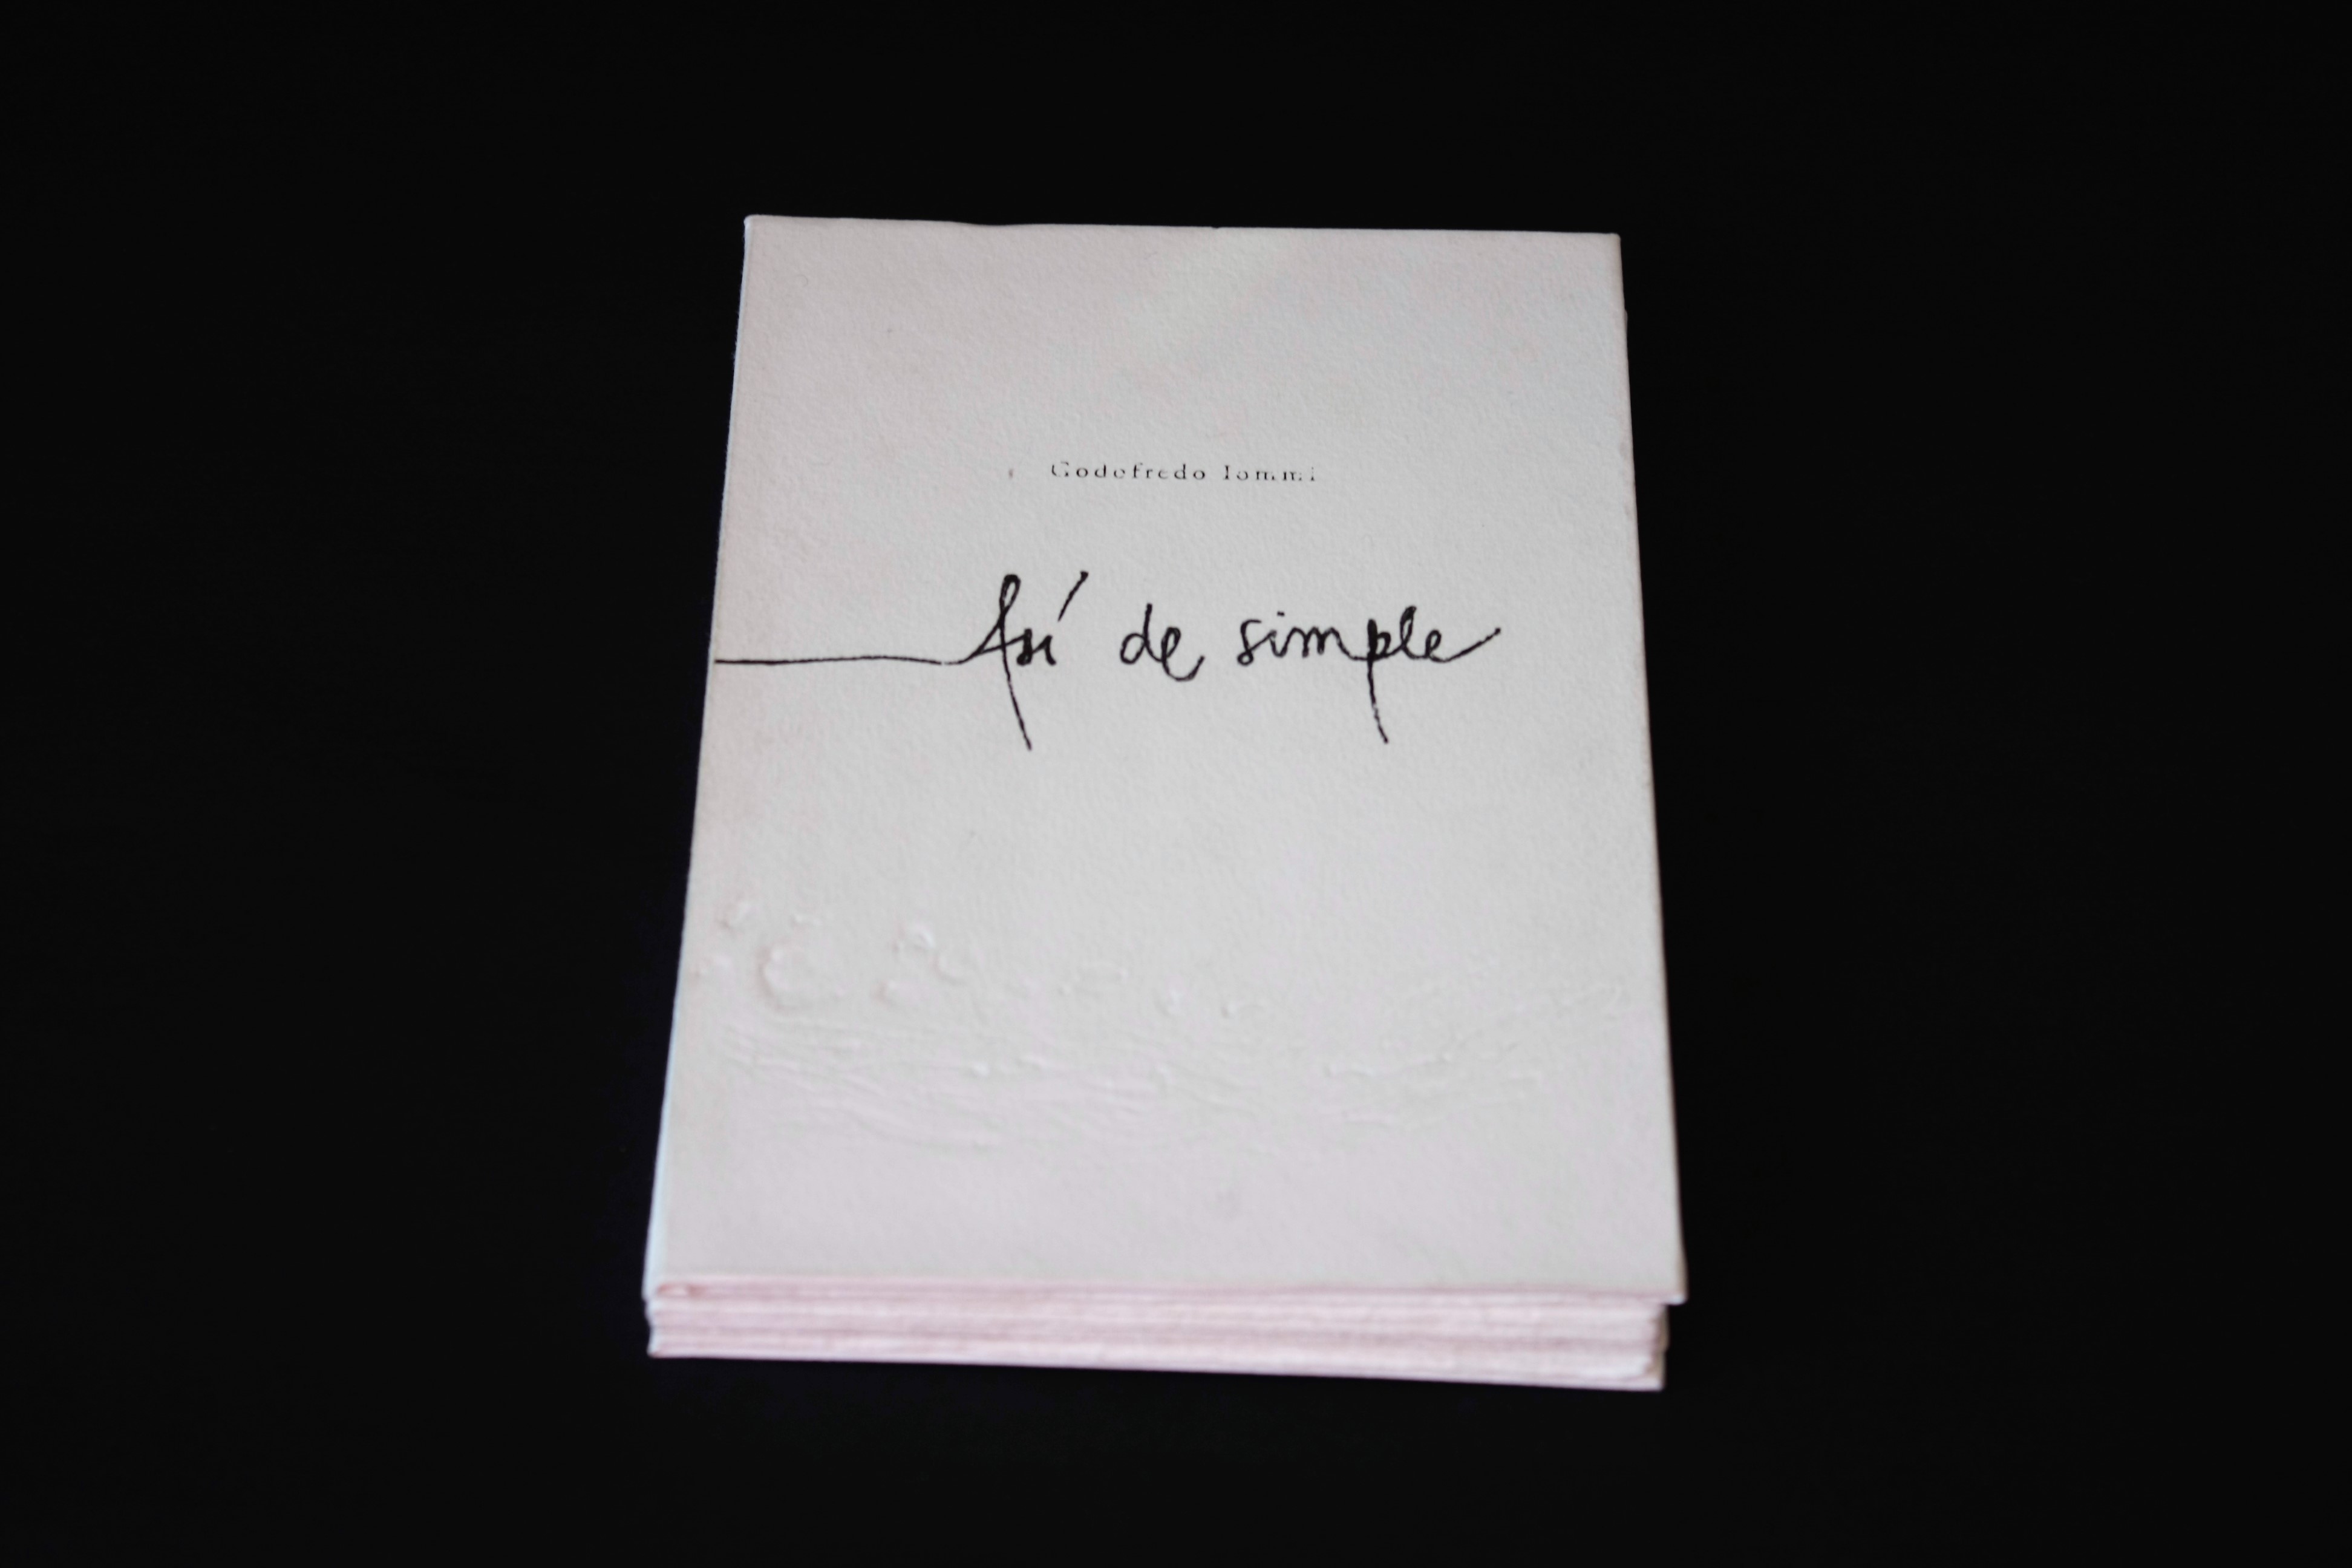 Godofredo Iommi
Así de simple